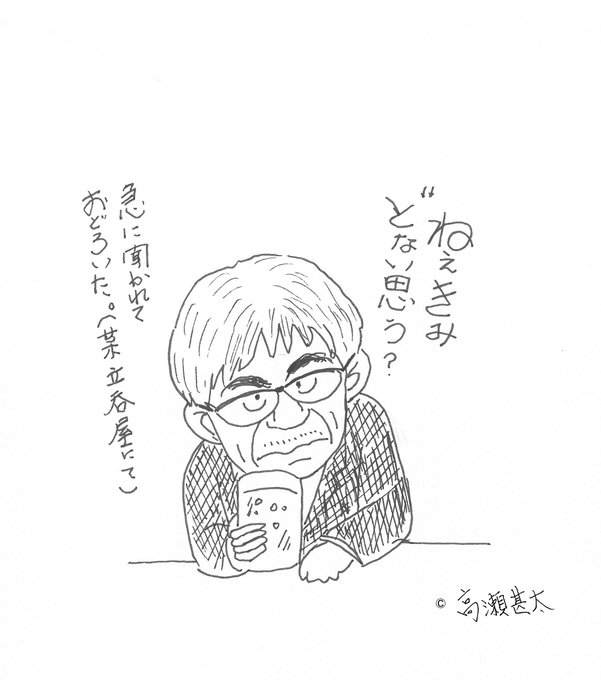 "ねぇきみ
どない思う?
急に聞かれて
おどろいた。(某立呑屋にて)
© 高瀬甚太